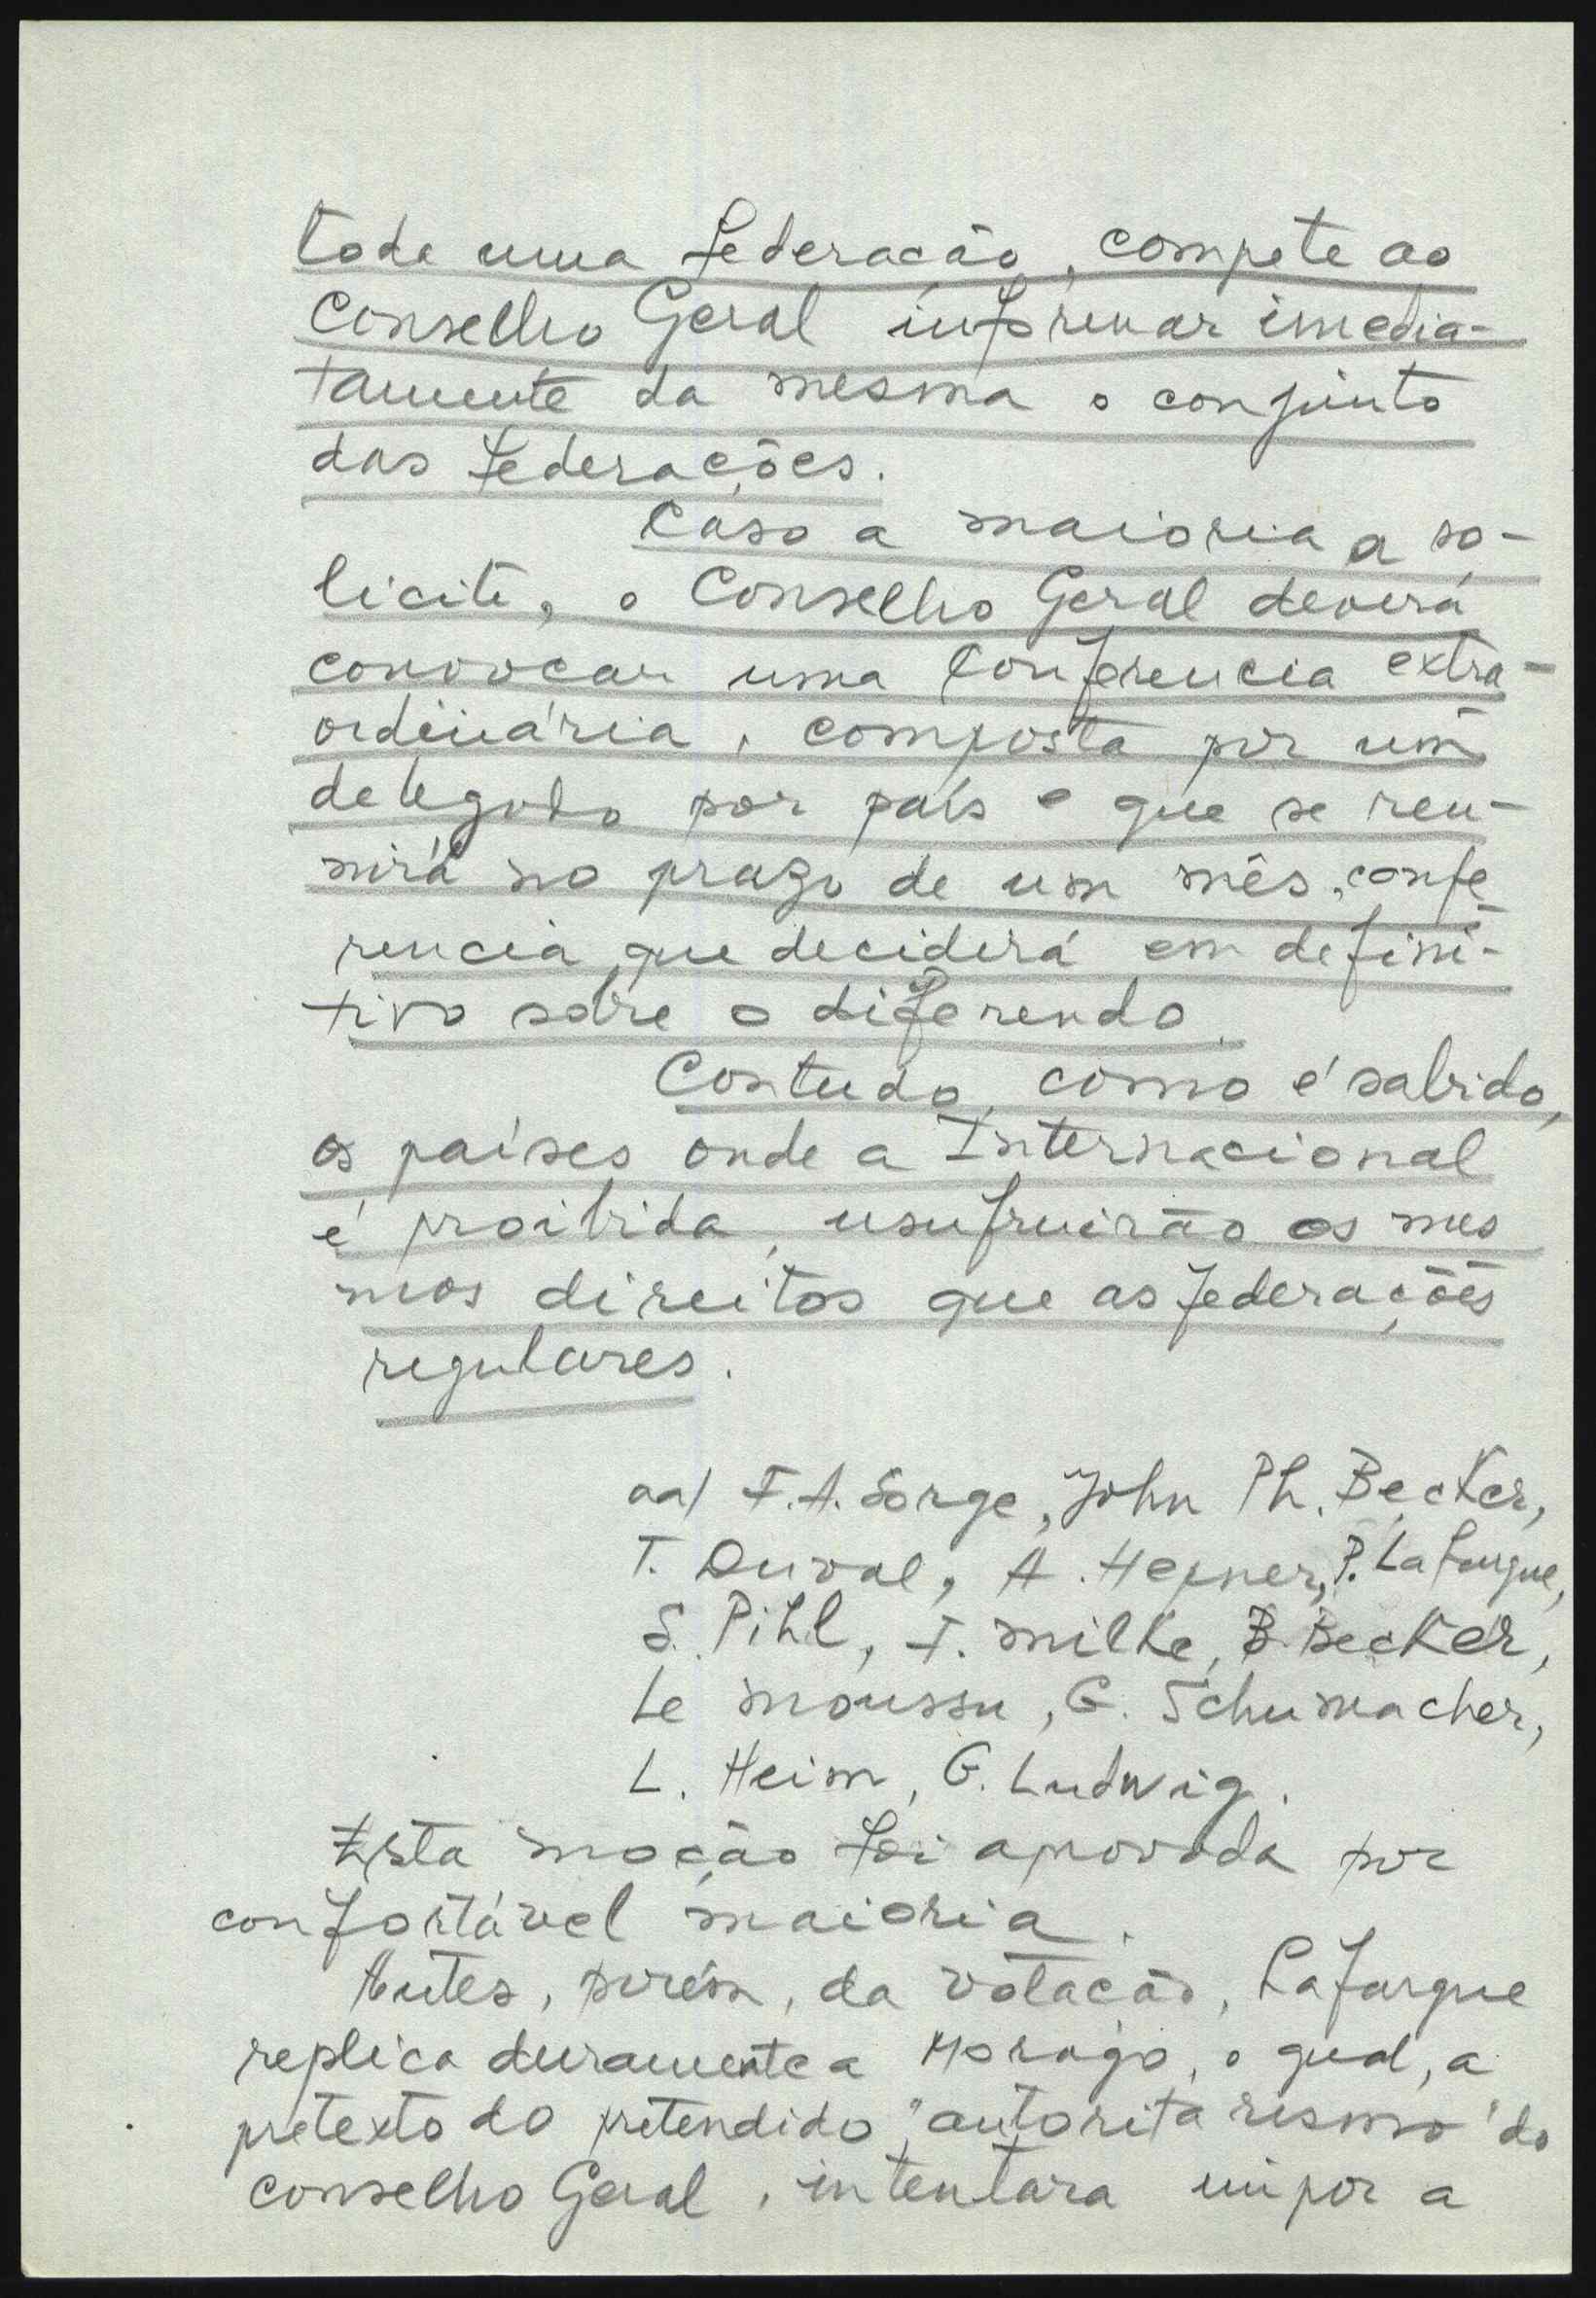 toda uma Federação, compete ao
Conselho Geral informar imedia-
tamente da mesma o conjunto
das Federações.
Caso a maioria a so-
licite, o Conselho Geral deverá
convocar uma Conferencia extra-
ordinária, composta por um
delegado por país e que se reu-
nirá no prazo de um mês, confe
rencia que deciderá em defini-
tivo sobre o diferendo.
Contudo, como é sabido,
os países onde a Internacional
é proibida, usufruirão os mes
mos direitos que as Federações
regulares.
aa) F.A. Sorge, John Ph. Becker,
T. Duval, A. Hepner, P. Lafargue,
S. Pihl, F. Milke, B. Becker,
Le Moussu, G. Schumacher,
L. Heim, G. Ludwig.
Esta moção foi aprovada por
confortável maioria.
Antes, porém, da votação, Lafargue
replica duramente a Morago, o qual, a
pretexto do pretendido "autoritarismo" do
Conselho Geral, intentara impor a